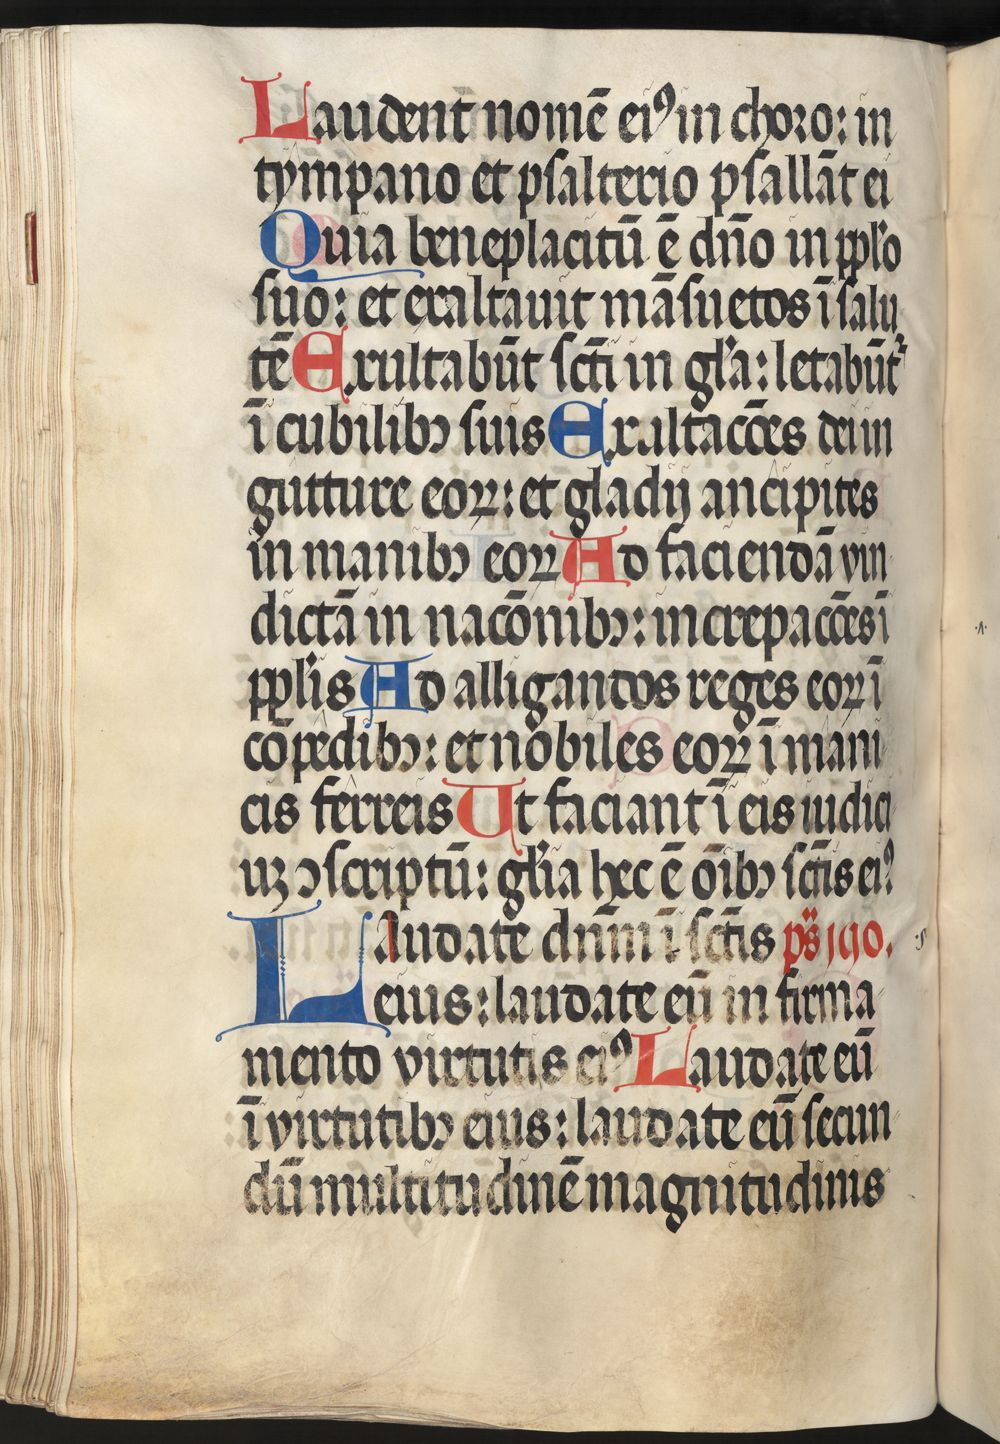 Laudent nomē eiꝰ in choro: in
tympano et psalterio psallāt ei
Quia beneplacitū ē dn̄o in pplo
suo: et exaltauit māsuetos ī salu
tē Exultabūt sc̄ti in gl̄a: letabūt᷑
ī cubilibꝫ suis Exultacōes dei in
gutture eoꝝ: et gladij ancipites
in manibꝫ eoꝝ Ad faciendā vin
dictā in nacōnibꝫ: increpacōes ī
pplis Ad alligandos reges eoꝝ ī
cōpedibꝫ: et nobiles eoꝝ ī mani
cis ferreis Ut faciant ī eis iudici
uꝫ ↄscriptū: gl̄ia hec ē oībꝫ sc̄tis eiꝰ
Laudate dn̄m ī sc̄tis ps̄ 150.
eius: laudate eū in firma
mento virtutis eiꝰ Laudate eū
ī virtutibꝫ eius: laudate eū secun
dū multitudinē magnitudinis